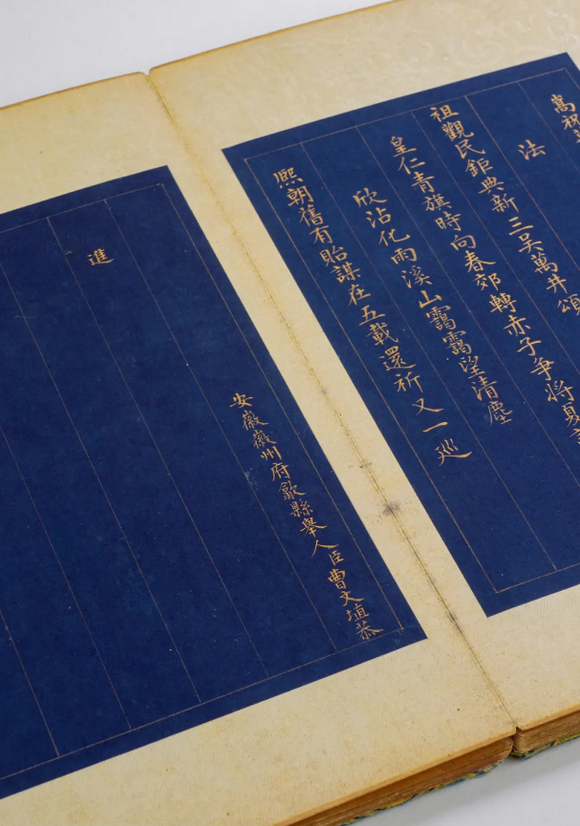 萬祝
法
祖觀民鉅典新三吳萬井頌
皇仁青旗時向春郊轉赤子爭將夏
欣沾化雨溪山靄靄望清塵
熙朝舊有貽謀在五載還祈又一巡
安徽徽州府歙縣舉人臣曹文埴恭
進